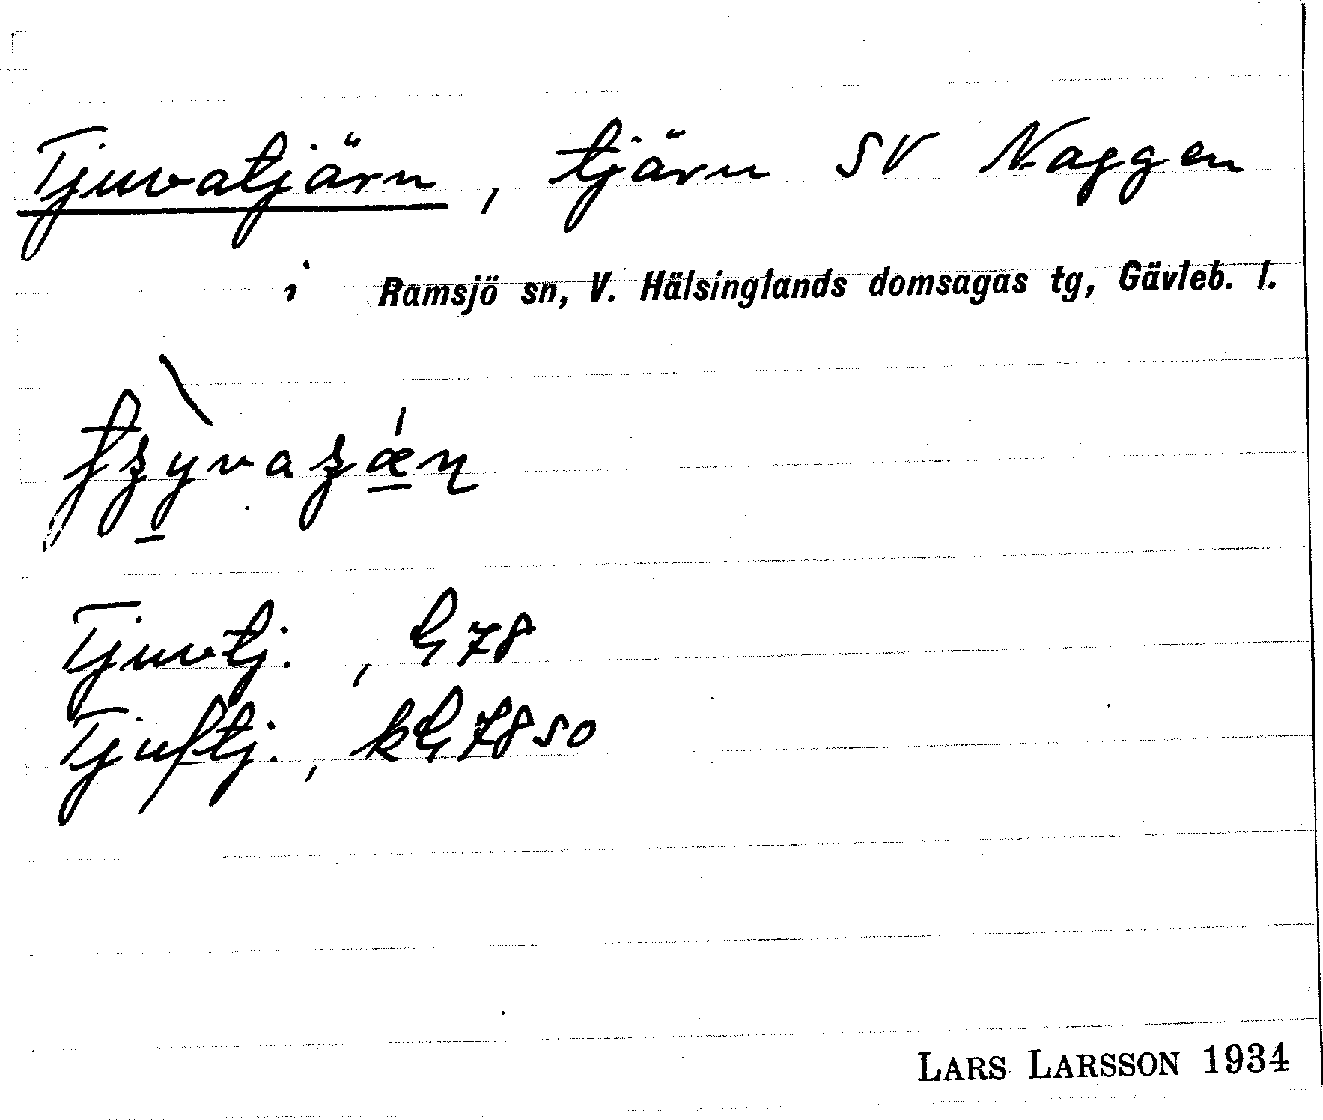 Tjuvatjärn, tjärn SV Naggen
i Ramsjö sn, V. Hälsinglands domsagas tg, Gävleb. l.
Tjuvtj., G78
Tjuftj., kG78SO
LARS LARSSON 1934